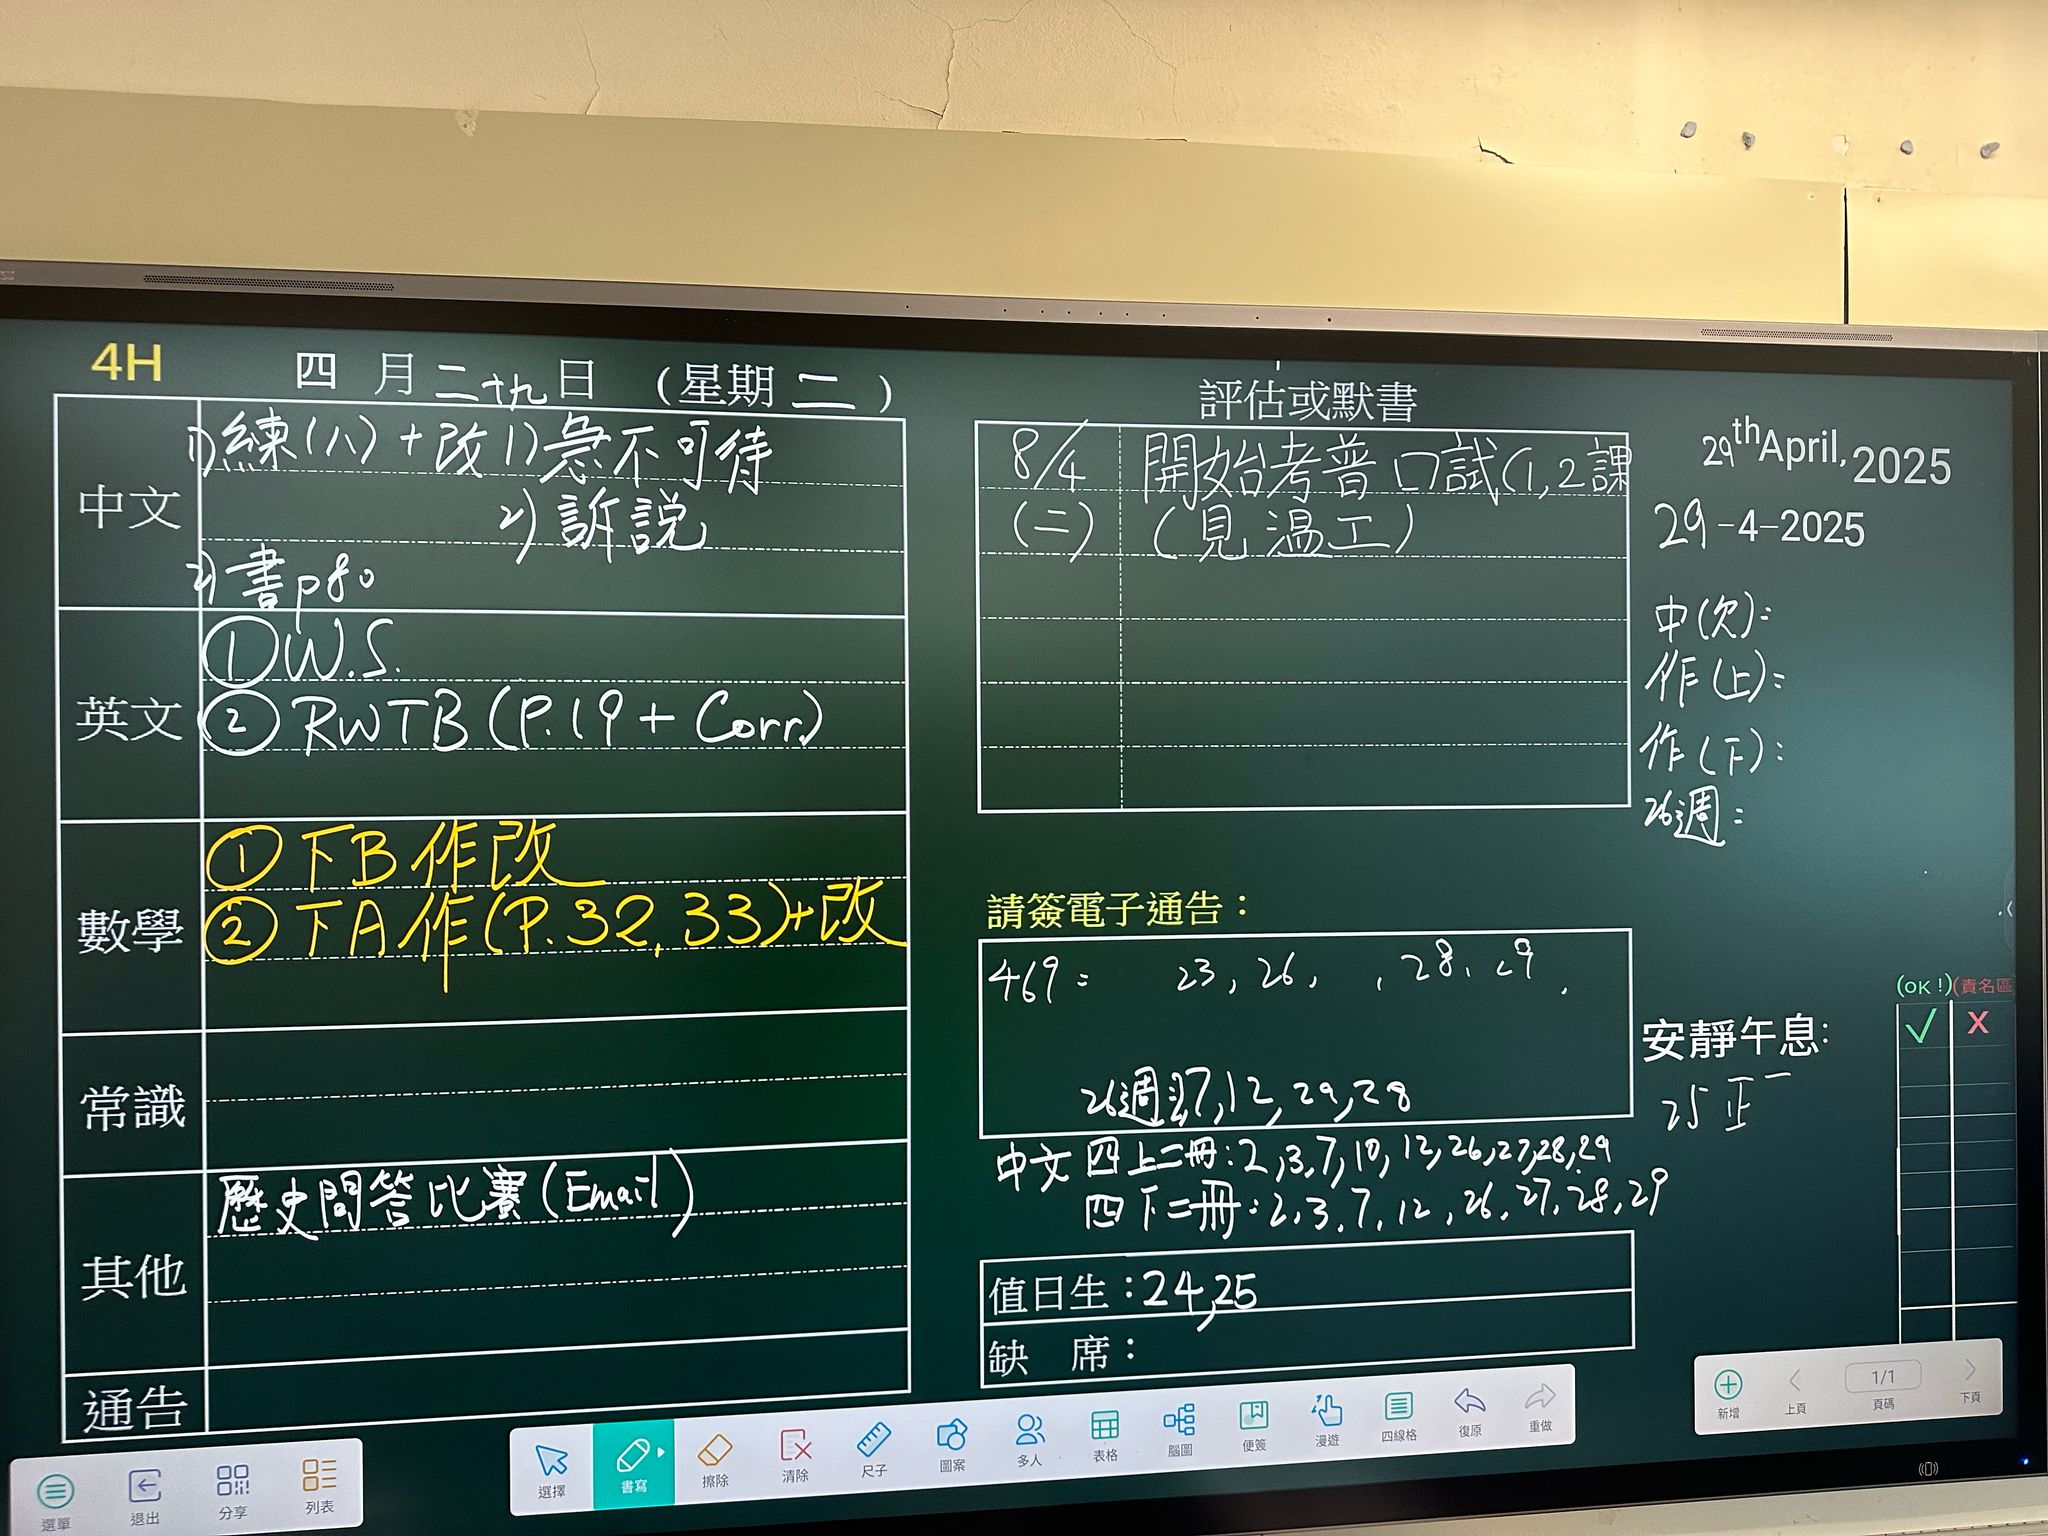 4H 四月二十九日 (星期二)
中文
1)練(八)+改 1)急不可待
2)訴説
2)書p80
英文
①W.S.
② RWTB (P.19 + Corr.)
數學
①下B作改
②下A作(P.32,33)+改
常識
其他
歷史問答比賽(Email)
通告
評估或默書
8/4 開始考普口試(1,2課
(二) (見溫工)
請簽電子通告：
469: 23, 26, , 28, 29
26週 27,12,29,28
中文 四上二冊:2,3,7,10,12,26,27,28,29
四下二冊:2,3,7,12,26,27,28,29
值日生：24,25
缺 席：
29th April, 2025
29-4-2025
中(欠):
作(上):
作(下):
26週:
(OK!)(責名區
✓ X
安靜午息:
25 正一
選單
退出
分享
列表
選擇
書寫
擦除
清除
尺子
圖案
多人
表格
腦圖
便簽
漫遊
四線格
復原
重做
新增
上頁
1/1
頁碼
下頁